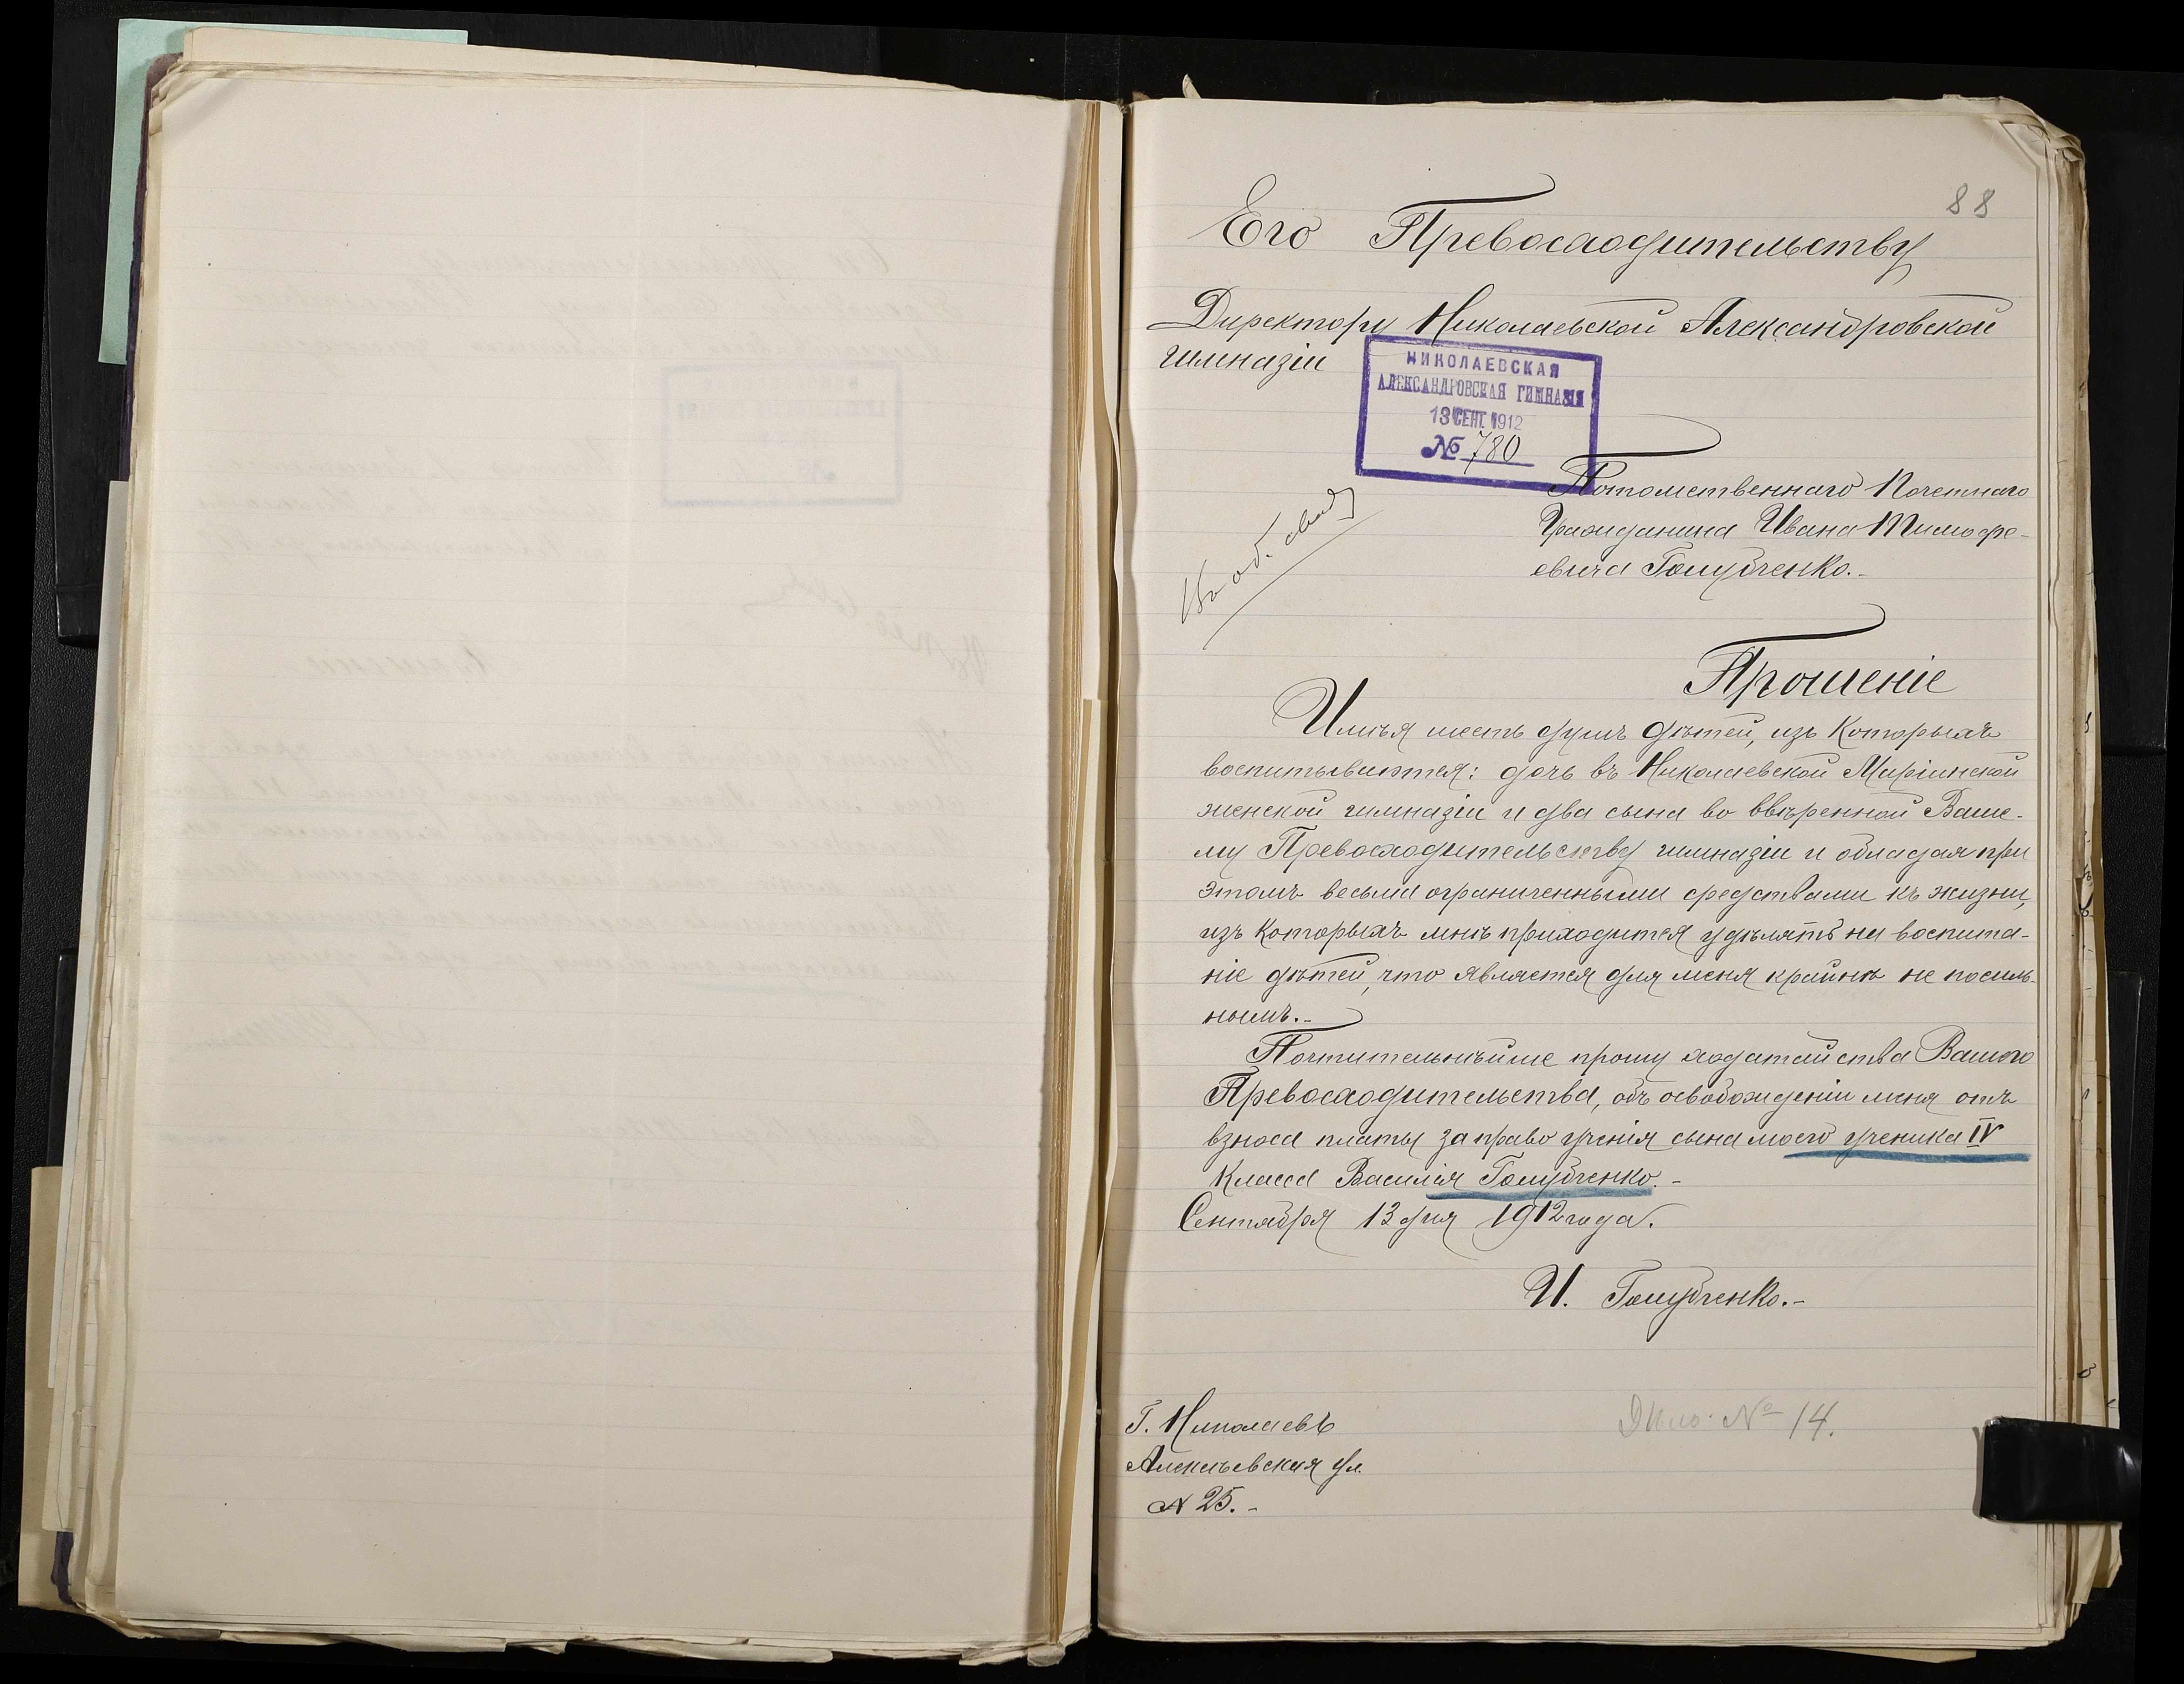 88
Его Превосходительству
Директору Николаевской Александровской
гимназіи
НИКОЛАЕВСКАЯ
АЛЕКСАНДРОВСКАЯ ГИМНАЗІЯ
13 СЕНТ. 1912
№ 780
Потомственнаго Почетнаго
Гражданина Ивана Тимофе-
евича Голубченко.-
Прошеніе
Имѣя шесть душъ дѣтей, изъ которыхъ
воспитываются: дочь въ Николаевской Маріинской
женской гимназіи и два сына во ввѣренной Ваше-
му Превосходительству гимназіи и обладая при
этомъ весьма ограниченными средствами къ жизни,
изъ которыхъ мнѣ приходится удѣлять на воспита-
ніе дѣтей, что является для меня крайнѣ не посиль-
нымъ.-
Почтительнѣйше прошу ходатайства Вашего
Превосходительства, объ освобожденіи меня отъ
взноса платы за право ученія сына моего ученика IV
класса Василія Голубченко.-
Сентября 13 дня 1912 года.
И. Голубченко.-
Г. Николаевъ
ул.
№ 25.-
Дѣло № 14.